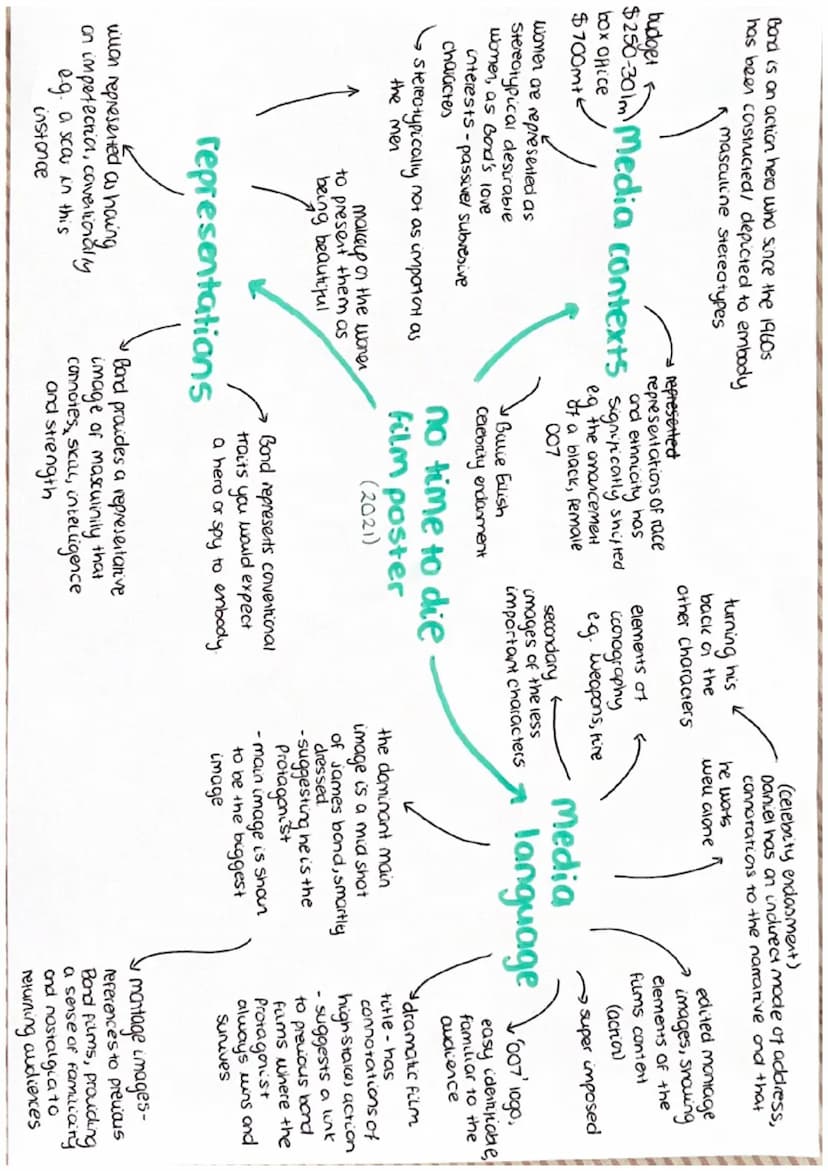 no time to die
film poster
(2021)
Media contexts
Bond is an action hero who since the 1960s
has been constructed/ depicted to embody
masculine stereotypes
budget
$250-301m
box office
$700mt
women are represented as
stereotypical desirable
women, as Bond's love
interests - passive/ subversive
character
→ stereotypically not as important as
the men
represented
representations of race
and ethnicity has
significantly shifted
eg the anancement
of a black, female
007
Billie Eilish
celebrity endorsment
representations
makeup on the women
to present them as
being beautiful
villan represented as having
an imperfection, conventionally
e.g. a scar in this
instance
Bond provides a representative
image of masculinity that
connotes, skill, intelligence
and strength
Bond represents conventional
traits you would expect
a hero or spy to embody
Media
language
(celebrity endorsment)
Daniel has an indirect mode of address,
connotations to the narrative and that
he works
well alone
turning his
back on the
other characters
elements of
iconography
e.g. weapons, fire
secondary
images of the less
important characters
the dominant main
image is a mid shot
of James bond, smartly
dressed
- suggesting he is the
protagonist
- main image is shown
to be the biggest
image
edited montage
images, showing
elements of the
films content
(action)
→ super imposed
'007' logo,
easy identificable,
familiar to the
audience
dramatic film
title - has
connotations of
high stakes action
- suggests a link
to previous bond
films where the
protagnist
always wins and
survives
montage images -
references to previous
Bond films, providing
a sense of familiarity
and nostalgia to
returning audiences